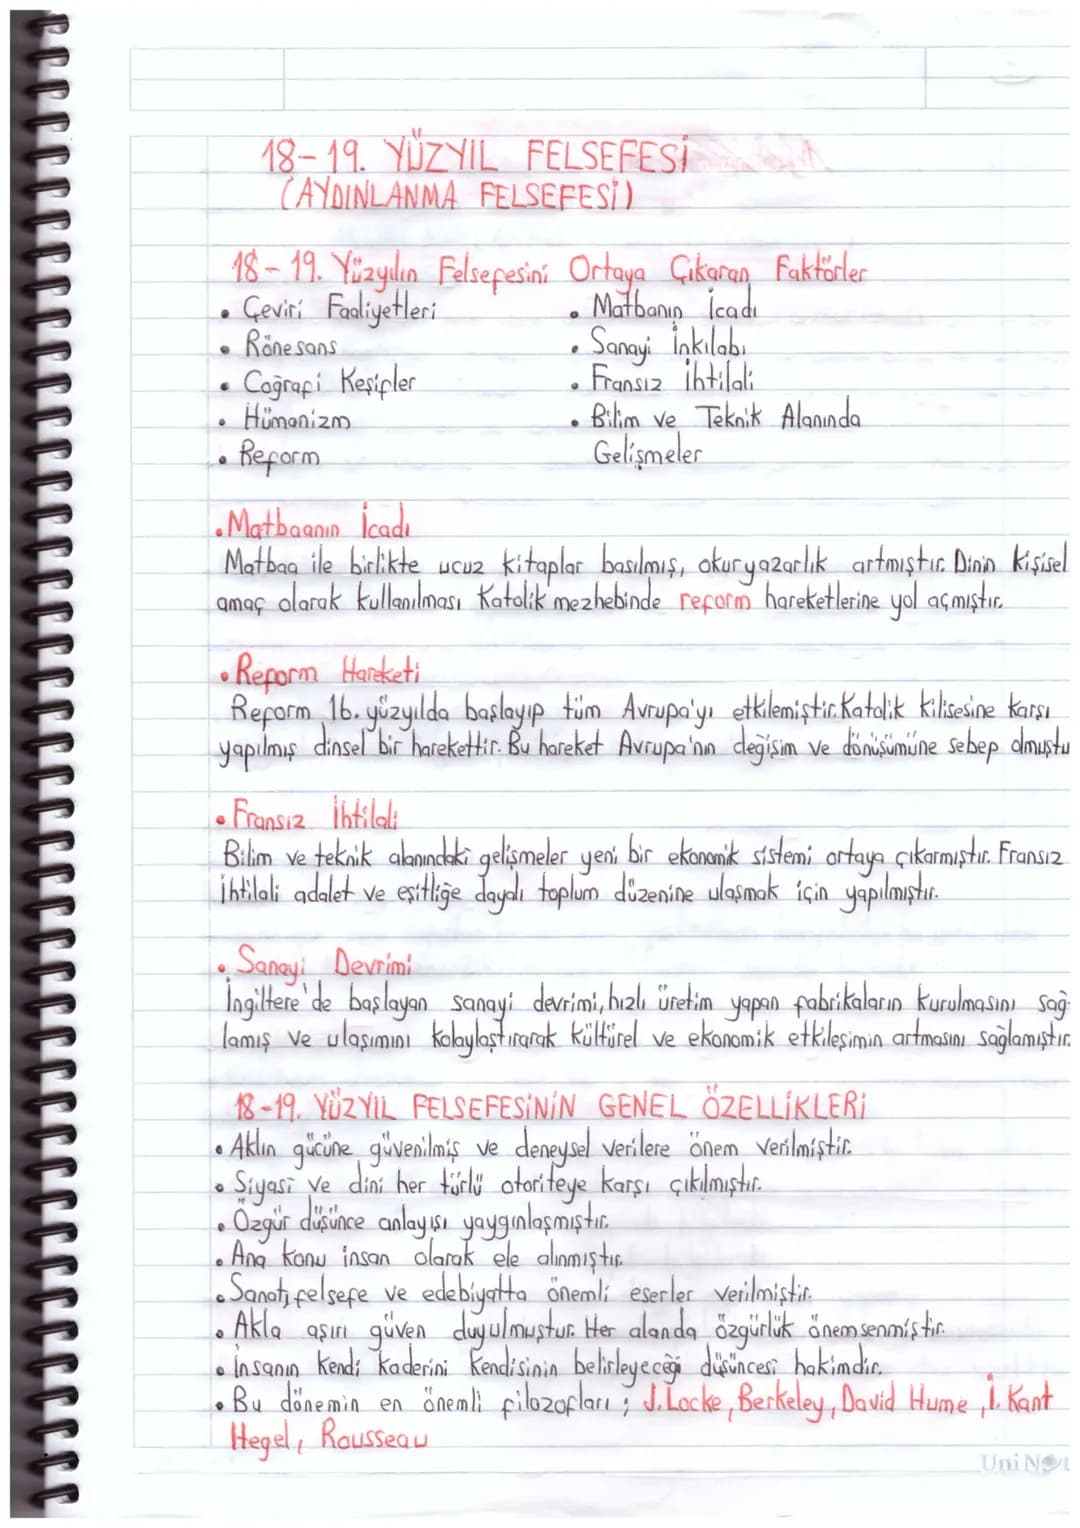 18-19. YÜZYIL FELSEFESİ
(AYDINLANMA FELSEFESİ)
18-19. Yüzyılın Felsefesini Ortaya Çıkaran Faktörler
• Çeviri Faaliyetleri
• Rönesans
• Coğrafi Keşifler
• Hümanizm
• Reform
• Matbanın İcadı
• Sanayi İnkılabı
• Fransız İhtilali
• Bilim ve Teknik Alanında
Gelişmeler
• Matbaanın İcadı
Matbaa ile birlikte ucuz kitaplar basılmış, okuryazarlık artmıştır. Dinin kişisel
amaç olarak kullanılması Katolik mezhebinde reform hareketlerine yol açmıştır.
• Reform Hareketi
Reform 16. yüzyılda başlayıp tüm Avrupa'yı etkilemiştir. Katolik kilisesine karşı
yapılmış dinsel bir harekettir. Bu hareket Avrupa'nın değişim ve dönüşümüne sebep olmuştu
• Fransız İhtilali
Bilim ve teknik alanındaki gelişmeler yeni bir ekonomik sistemi ortaya çıkarmıştır. Fransız
İhtilali adalet ve eşitliğe dayalı toplum düzenine ulaşmak için yapılmıştır.
• Sanayi Devrimi
İngiltere'de başlayan sanayi devrimi, hızlı üretim yapan fabrikaların kurulmasını sağ-
lamış ve ulaşımını kolaylaştırarak kültürel ve ekonomik etkileşimin artmasını sağlamıştır.
18-19. YÜZYIL FELSEFESİNİN GENEL ÖZELLİKLERİ
• Aklın gücüne güvenilmiş ve deneysel verilere önem verilmiştir.
• Siyasi ve dini her türlü otoriteye karşı çıkılmıştır.
• Özgür düşünce anlayışı yaygınlaşmıştır.
• Ana konu insan olarak ele alınmıştır.
• Sanat, felsefe ve edebiyatta önemli eserler verilmiştir.
• Akla aşırı güven duyulmuştur. Her alanda özgürlük önemsenmiştir.
• İnsanın kendi kaderini kendisinin belirleyeceği düşüncesi hakimdir.
• Bu dönemin en önemli filozofları ; J. Locke, Berkeley, David Hume, İ. Kant
Hegel, Rousseau